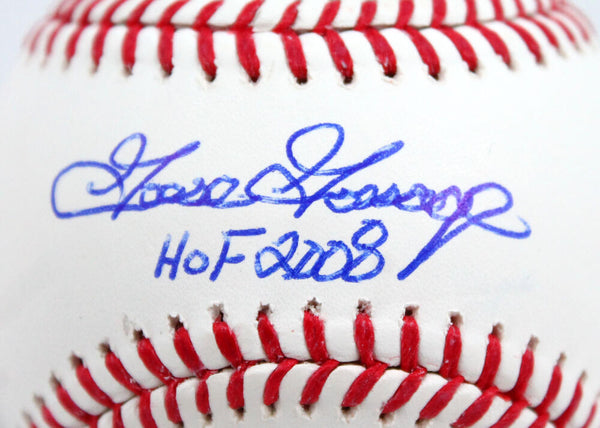 Goose Gossage
HOF 2008